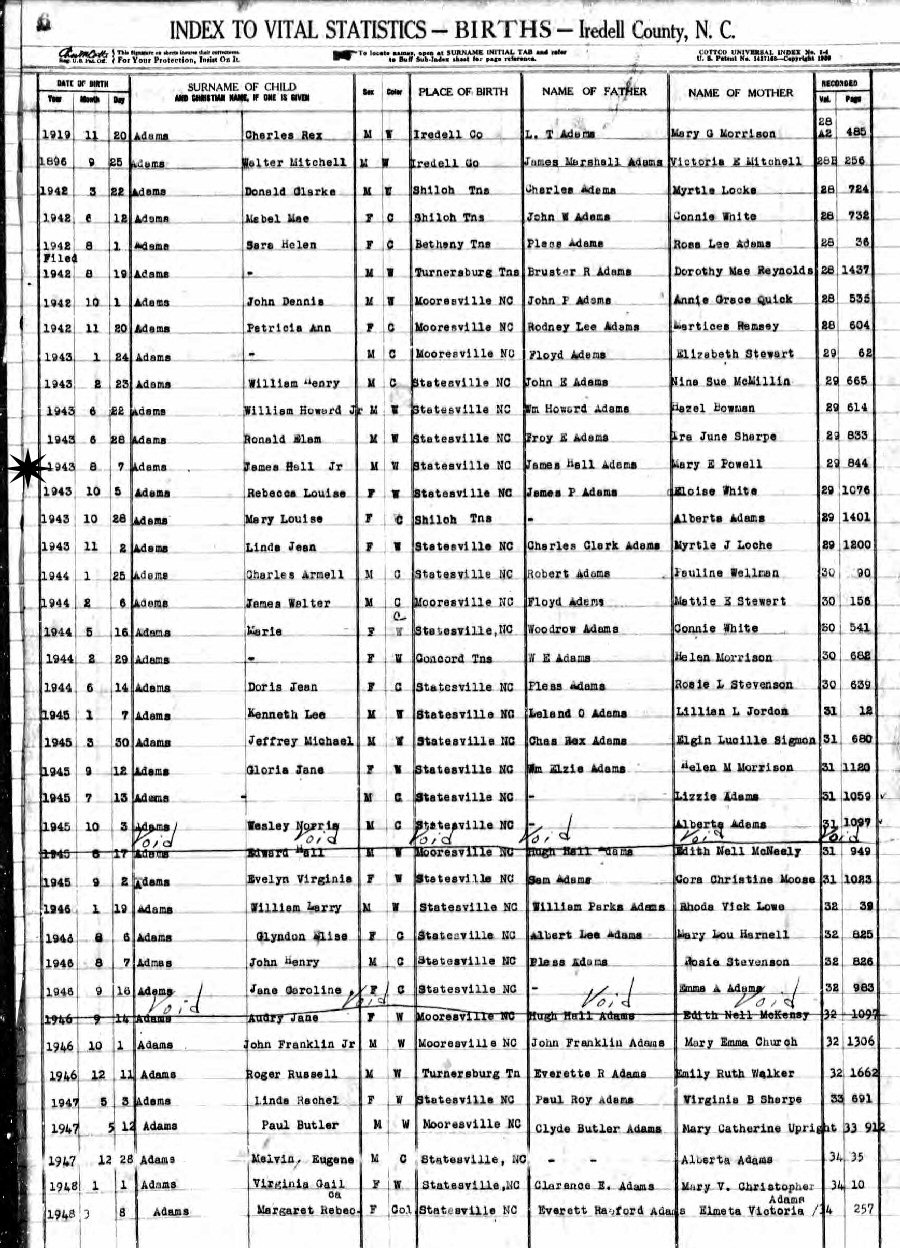 6
INDEX TO VITAL STATISTICS — BIRTHS — Iredell County, N. C.
This Signature on sheets insures their correctness.
Reg. U.S. Pat. Off. For Your Protection, Insist On It.
To locate names, open at SURNAME INITIAL TAB and refer
to Buff Sub-Index sheet for page reference.
COTTCO UNIVERSAL INDEX No. 1-4
DATE OF BIRTH SURNAME OF CHILD Sex Color PLACE OF BIRTH NAME OF FATHER NAME OF MOTHER RECORDED
Year Month Day AND CHRISTIAN NAME, IF ONE IS GIVEN Vol. Page
1919 11 20 Adams Charles Rex M W Iredell Co L. T Adams Mary G Morrison 28 A2 485
1896 9 25 Adams Walter Mitchell M W Iredell Co James Marshall Adams Victoria E Mitchell 28B 256
1942 3 22 Adams Donald Clarke M W Shiloh Tns Charles Adams Myrtle Locke 28 724
1942 6 12 Adams Mabel Mae F C Shiloh Tns John W Adams Connie White 28 732
1942 8 1 Adams Sara Helen F C Bethany Tns Pless Adams Rosa Lee Adams 28 36
Filed
1942 8 19 Adams - M W Turnersburg Tns Bruster R Adams Dorothy Mae Reynolds 28 1437
1942 10 1 Adams John Dennis M W Mooresville NC John P Adams Annie Grace Quick 28 535
1942 11 20 Adams Patricia Ann F C Mooresville NC Rodney Lee Adams Ramsey 28 604
1943 1 24 Adams - M C Mooresville NC Floyd Adams Elizabeth Stewart 29 62
1943 2 23 Adams William Henry M C Statesville NC John E Adams Nina Sue McMillin 29 665
1943 6 22 Adams William Howard Jr M W Statesville NC Wm Howard Adams Hazel Bowman 29 614
1943 6 28 Adams Ronald Elam M W Statesville NC Troy E Adams Ira June Sharpe 29 833
1943 8 7 Adams James Hall Jr M W Statesville NC James Hall Adams Mary E Powell 29 844
1943 10 5 Adams Rebecca Louise F W Statesville NC James P Adams Eloise White 29 1076
1943 10 28 Adams Mary Louise F C Shiloh Tns - Alberta Adams 29 1401
1943 11 2 Adams Linda Jean F W Statesville NC Charles Clark Adams Myrtle J Loche 29 1200
1944 1 25 Adams Charles Armell M C Statesville NC Robert Adams Pauline Wellman 30 90
1944 2 6 Adams James Walter M C Mooresville NC Floyd Adams Mattie E Stewart 30 156
C
1944 5 16 Adams Marie F W Statesville,NC Woodrow Adams Connie White 30 541
1944 2 29 Adams - F W Concord Tns W E Adams Helen Morrison 30 682
1944 6 14 Adams Doris Jean F C Statesville NC Pless Adams Rosie L Stevenson 30 639
1945 1 7 Adams Kenneth Lee M W Statesville NC Leland O Adams Lillian L Jordon 31 12
1945 3 30 Adams Jeffrey Michael M W Statesville NC Chas Rex Adams Elgin Lucille Sigmon 31 680
1945 9 12 Adams Gloria Jane F W Statesville NC Wm Elzie Adams Helen M Morrison 31 1120
1945 7 13 Adams - M C Statesville NC - Lizzie Adams 31 1059
1945 10 3 Adams Wesley Norris M C Statesville NC - Alberta Adams 31 1097
Void Void Void Void Void Void
1945 6 17 Adams Edward Hall M W Mooresville NC Hugh Hall Adams Edith Nell McNeely 31 949
1945 9 2 Adams Evelyn Virginia F W Statesville NC Sam Adams Cora Christine Moose 31 1023
1946 1 19 Adams William Larry M W Statesville NC William Parks Adams Rhoda Vick Lowe 32 39
1946 6 Adams Glyndon Elise F C Statesville NC Albert Lee Adams Mary Lou Harnell 32 825
1946 8 7 Admas John Henry M C Statesville NC Pless Adams Rosie Stevenson 32 826
1946 9 16 Adams Jane Caroline F C Statesville NC - Emma A Adams 32 983
Void Void Void Void
1946 9 14 Adams Audry Jane F W Mooresville NC Hugh Hall Adams Edith Nell McKensy 32 1097
1946 10 1 Adams John Franklin Jr M W Mooresville NC John Franklin Adams Mary Emma Church 32 1306
1946 12 11 Adams Roger Russell M W Turnersburg Tn Everette R Adams Emily Ruth Walker 32 1662
1947 5 3 Adams Linda Rachel F W Statesville NC Paul Roy Adams Virginia B Sharpe 33 691
1947 5 12 Adams Paul Butler M W Mooresville NC Clyde Butler Adams Mary Catherine Upright 33 912
1947 12 28 Adams Melvin, Eugene M C Statesville, NC - - Alberta Adams 34 35
1948 1 1 Adams Virginia Gail F W Statesville,NC Clarence E. Adams Mary V. Christopher 34 10
ca Adams
1948 3 8 Adams Margaret Rebec F Col Statesville NC Everett Rayford Adams Elmeta Victoria / 34 257